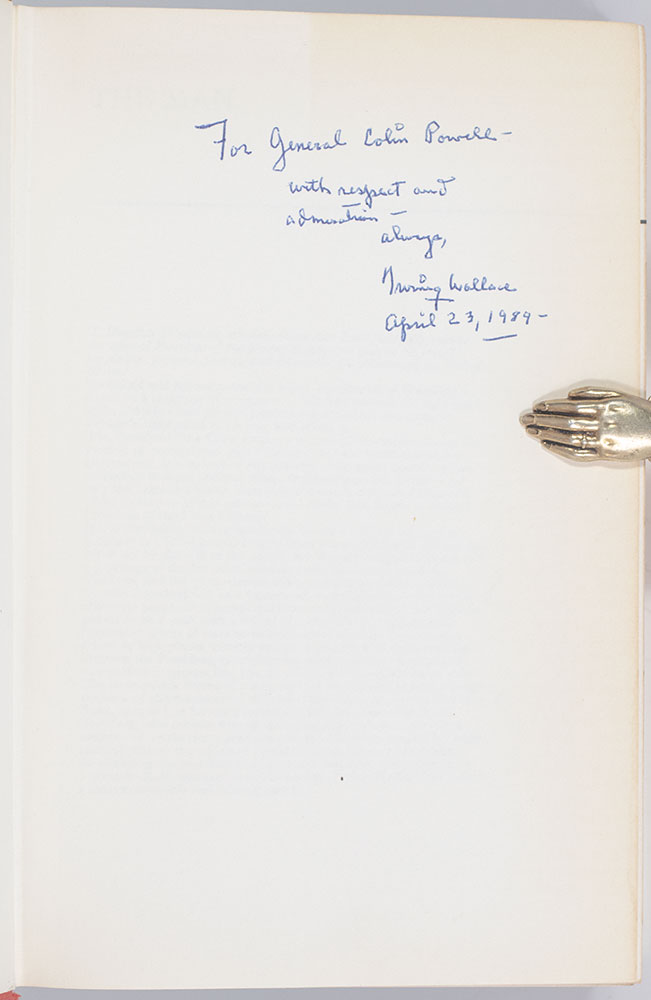 For General Colin Powell –
with respect and
admiration –
always,
Irving Wallace
April 23, 1989 –